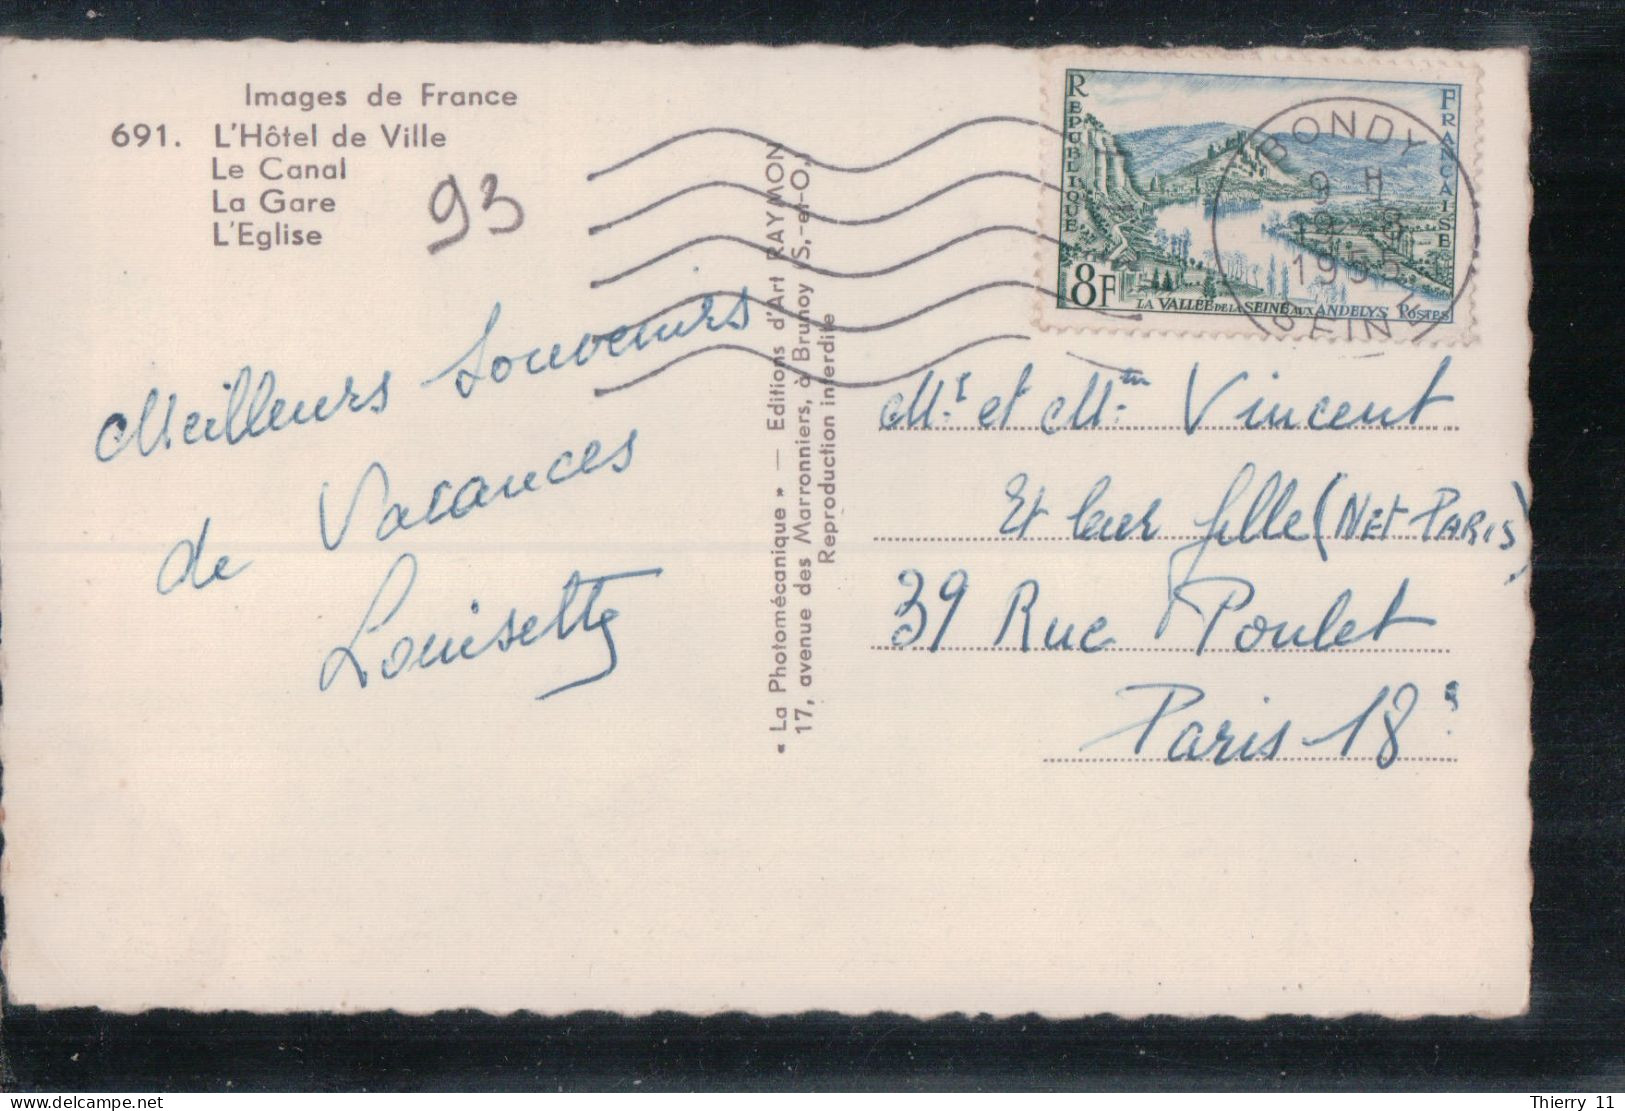 Images de France
691. L'Hôtel de Ville
Le Canal
La Gare
L'Eglise
93
Meilleurs Souvenirs
de Vacances
Louisette
« La Photomécanique » — Editions d'Art RAYMON
17, avenue des Marronniers, à Brunoy (S.-et-O.)
Reproduction interdite
REPUBLIQUE
FRANCAISE
8F
LA VALLEE DE LA SEINE AUX ANDELYS POSTES
BONDY
9 H
1955
SEINE
Mr et Mme Vincent
Et leur fille (NET PARIS)
39 Rue Poulet
Paris 18e
Thierry 11